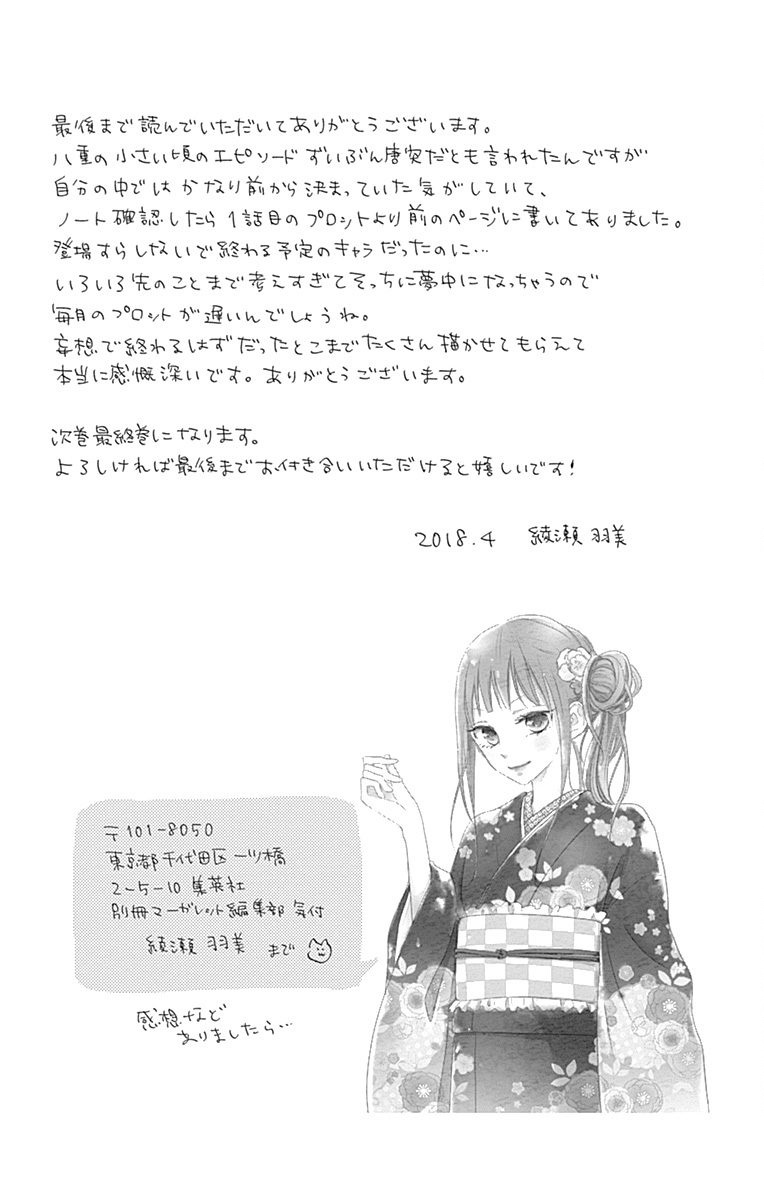 最後まで読んでいただいてありがとうございます。
八重の小さい頃のエピソードずいぶん唐突だとも言われたんですが
自分の中ではかなり前から決まっていた気がしていて、
ノート確認したら1話目のプロットより前のページに書いてありました。
登場すらしないで終わる予定のキャラだったのに…
いろいろ先のことまで考えすぎてそっちに夢中になっちゃうので
毎月のプロットが遅いんでしょうね。
妄想で終わるはずだったとこまでたくさん描かせてもらえて
本当に感慨深いです。ありがとうございます。
次巻最終巻になります。
よろしければ最後までお付き合いいただけると嬉しいです!
2018.4 綾瀬羽美
〒101-8050
東京都千代田区一ツ橋
2-5-10 集英社
別冊マーガレット編集部 気付
綾瀬羽美 まで
感想など
ありましたら…